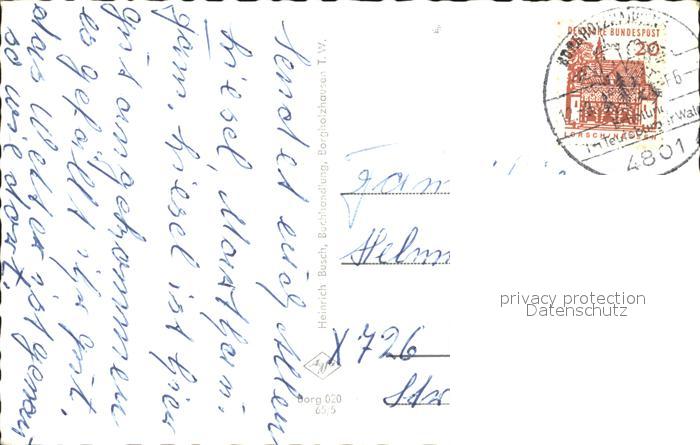 Sendet euch Allen
Liesel,
Liesel ist hier
gut angekommen
es gefällt ihr gut.
das Wetter ist genau
so wie dort.
Heinrich Busch, Buchhandlung, Borgholzhausen T. W.
Agfa
Borg 020
65/5
DEUTSCHE BUNDESPOST
20
LORSCH/HESSEN
BORGHOLZHAUSEN
im Teutoburger Wald
4801
Fam
Helm
X 726
Str
privacy protection
Datenschutz